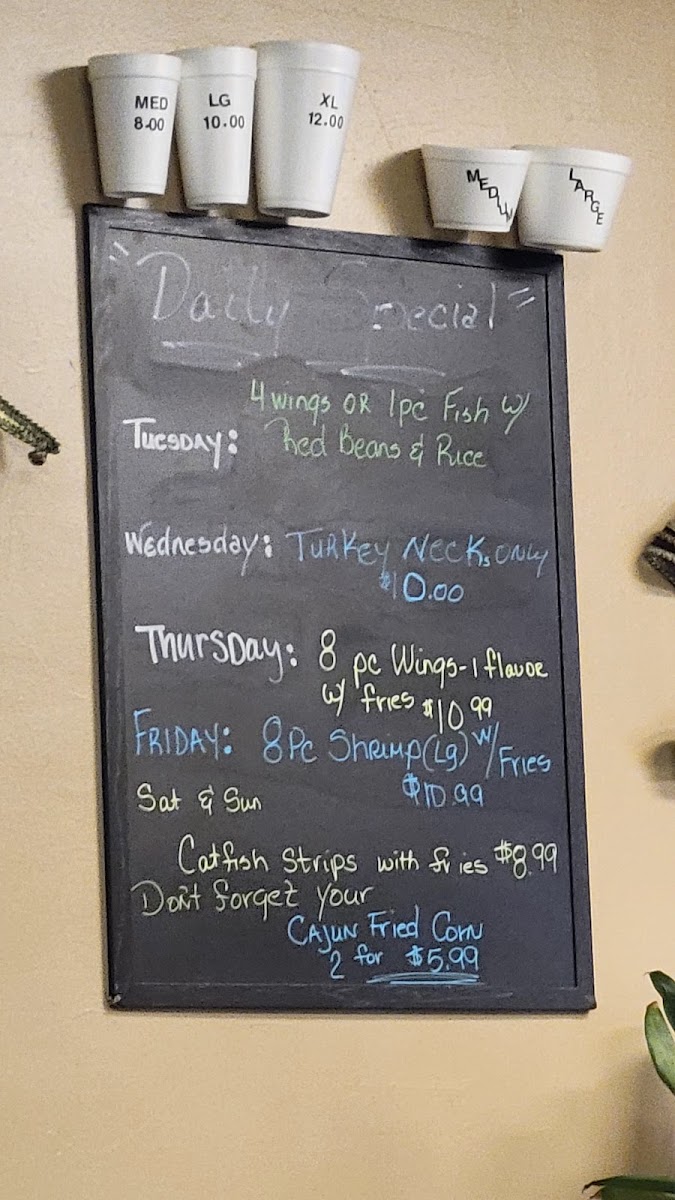 MED
8-00
LG
10.00
XL
12.00
MEDIUM
LARGE
"Daily Special"
4 wings OR 1pc Fish w/
Tuesday: Red Beans & Rice
Wednesday: Turkey Necks only
$10.00
Thursday: 8 pc Wings-1 flavor
w/ fries $10 99
Friday: 8Pc Shrimp(Lg) w/Fries
$10.99
Sat & Sun
Catfish Strips with fries $8.99
Don't forget your
Cajun Fried Corn
2 for $5.99